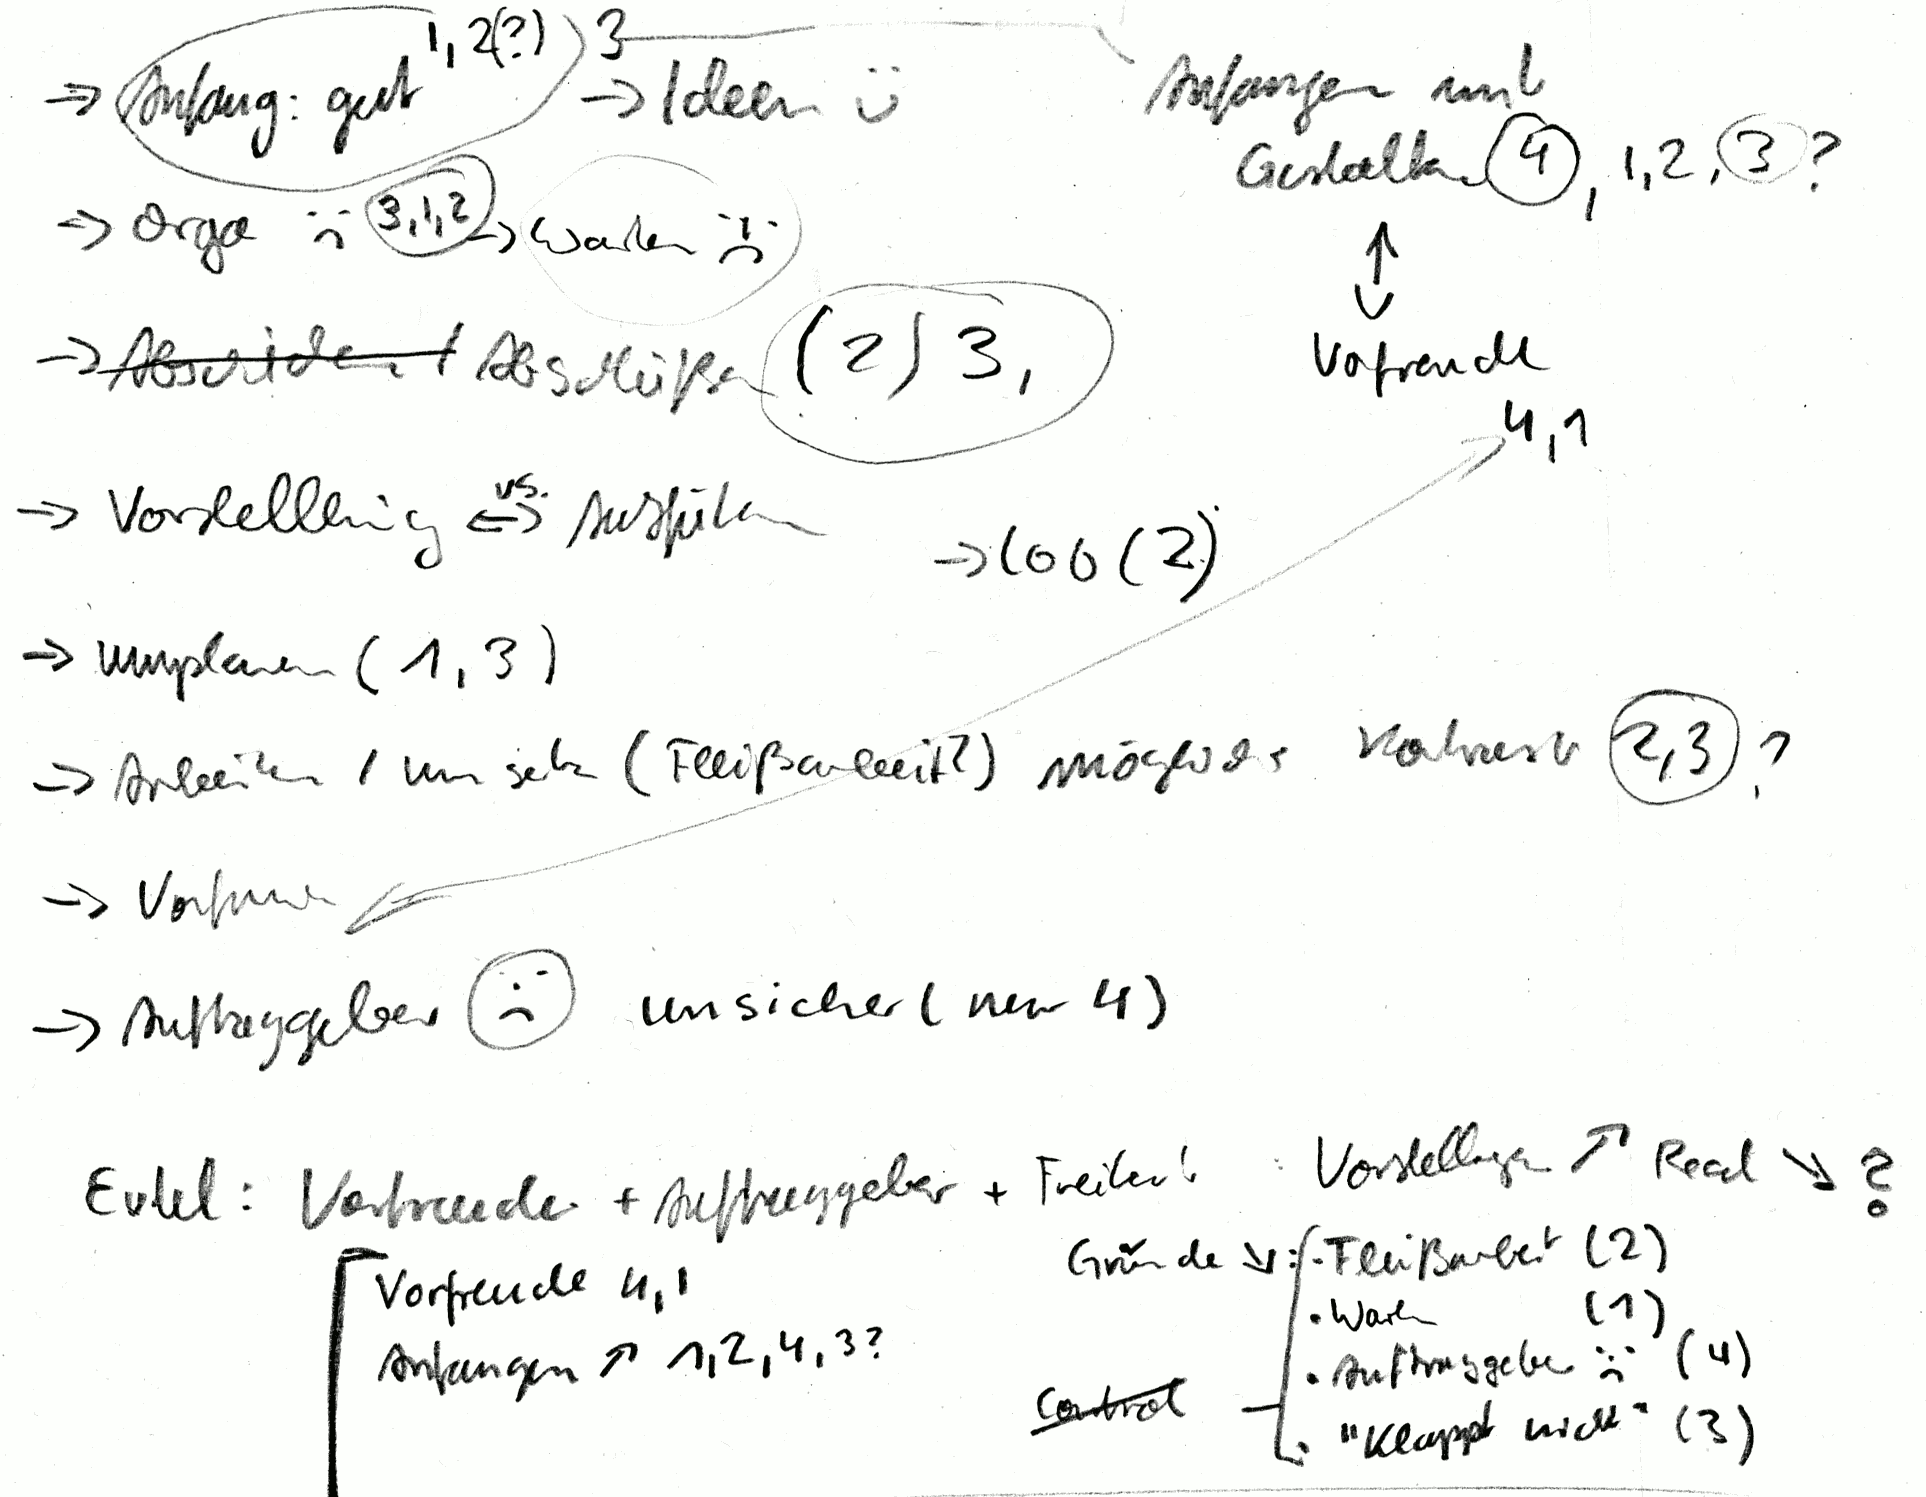 → Anfang: gut 1, 2(?) 3 → Ideen
Anfangen mit
Gestalten 4, 1, 2, 3 ?
→ Orga 3,1,2 → Warten
→ / Abschließen (2) 3,
Vorfreude
4,1
→ Vorstellung vs. Ausführen
→ Lob (2)
→ Umplanen (1, 3)
→ Arbeiten / Umsetzen (Fleißarbeit?) 2,3 ?
→
→ Auftraggeber unsicher (nur 4)
Evtl: Vorfreude + Auftraggeber + Freiheit
Vorstellungen ↗ Real ↘ ?
Vorfreude 4,1
Anfangen ↗ 1,2,4,3?
Gründe ↘ : · Fleißarbeit (2)
· Warten (1)
· Auftraggeber (4)
Control
· "Klappt nicht" (3)